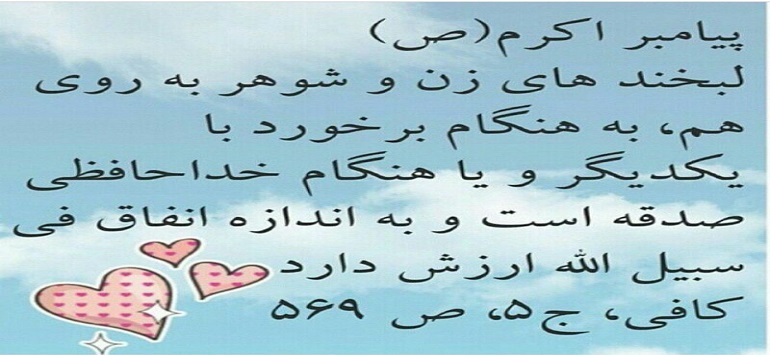 پیامبر اکرم(ص)
لبخند های زن و شوهر به روی
هم، به هنگام برخورد با
یکدیگر و یا هنگام خداحافظی
صدقه است و به اندازه انفاق فی
سبیل الله ارزش دارد
کافی، ج۵، ص ۵۶۹